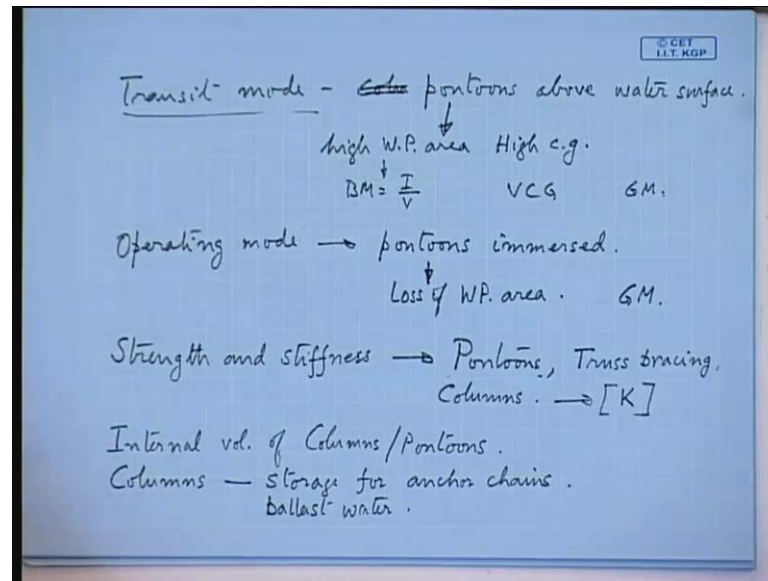 © CET
I.I.T. KGP
Transit mode - pontoons above water surface.
high W.P. area High c.g.
BM = I/V VCG GM.
Operating mode → pontoons immersed.
Loss of WP. area. GM.
Strength and stiffness → Pontoons, Truss bracing,
Columns. → [K]
Internal vol. of Columns/Pontoons.
Columns — storage for anchor chains.
ballast water.